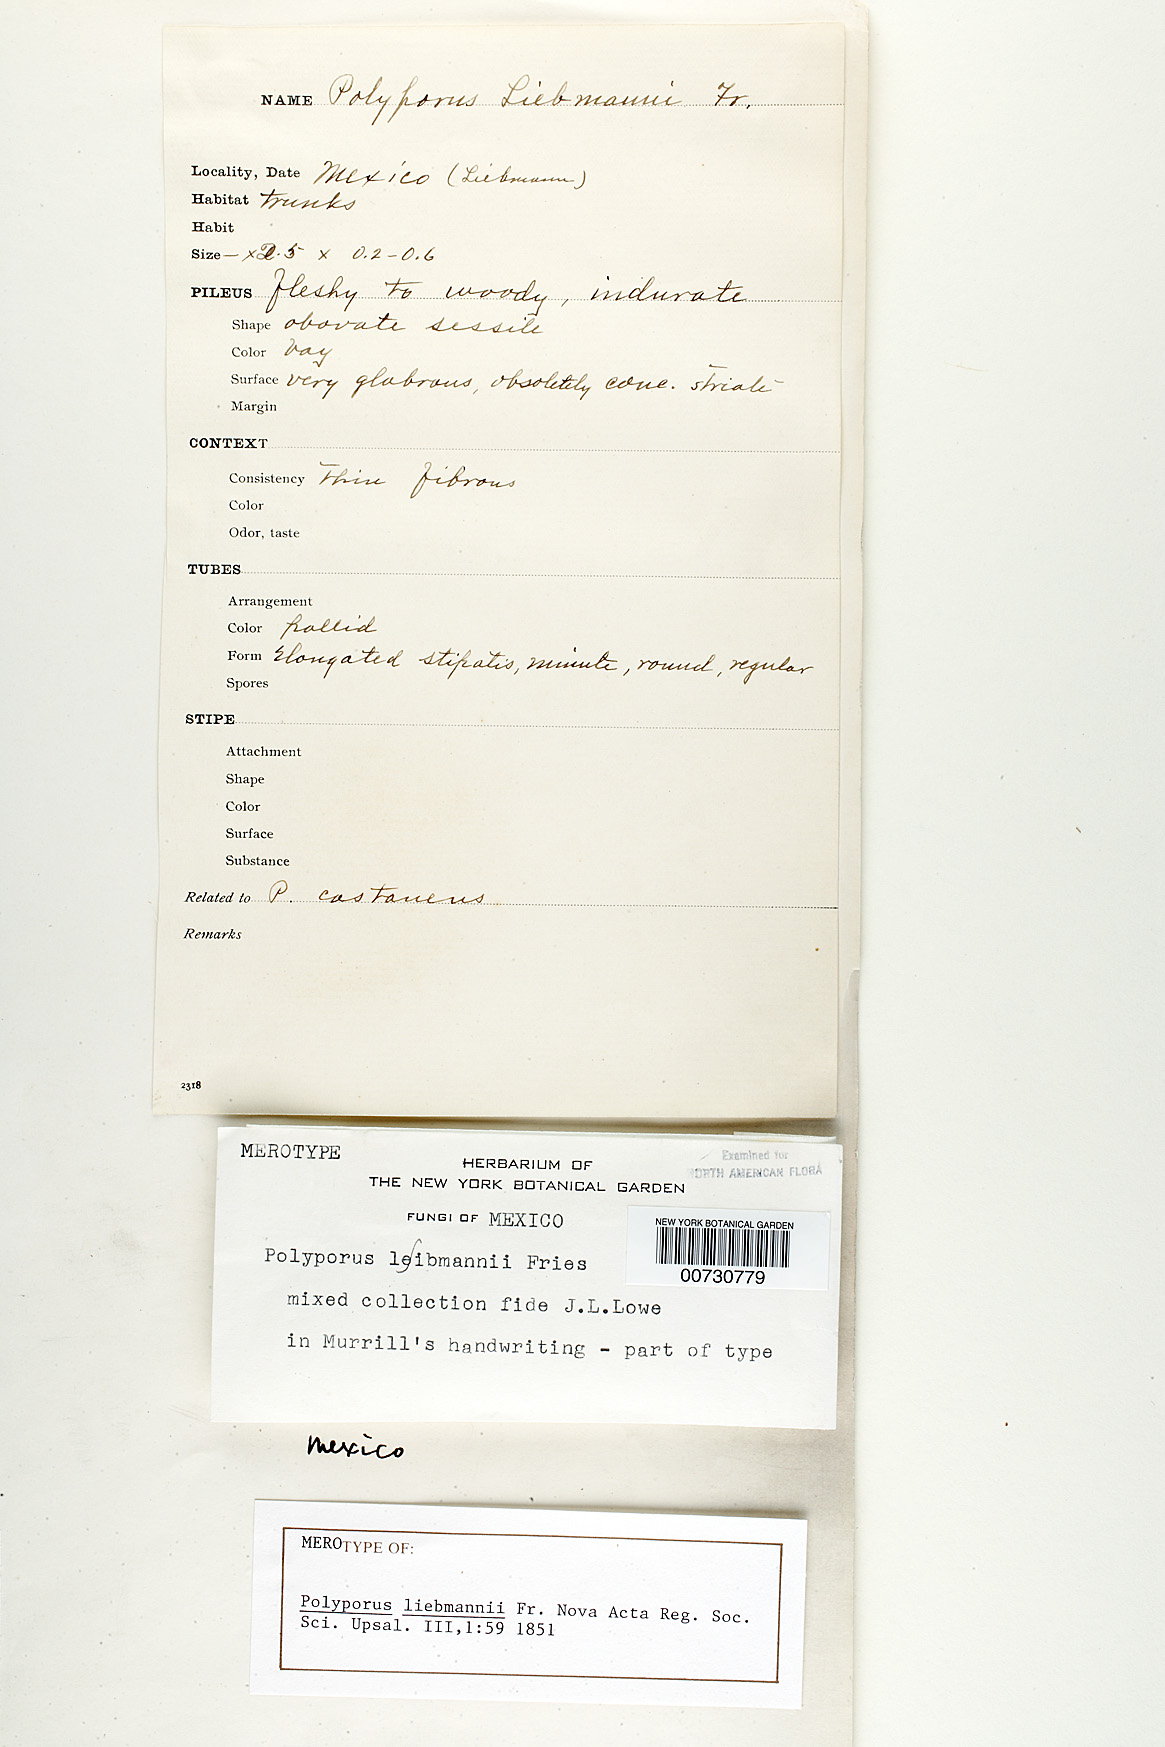 NAME Polyporus Liebmanni Fr.
Locality, Date Mexico (Liebmann)
Habitat trunks
Habit
Size — x 2.5 x 0.2-0.6
PILEUS fleshy to woody, indurate
Shape obovate sessile
Color bay
Surface very glabrous, obsoletely conc. striate
Margin
CONTEXT
Consistency thin fibrous
Color
Odor, taste
TUBES
Arrangement
Color pallid
Form Elongated stipatis, minute, round, regular
Spores
STIPE
Attachment
Shape
Color
Surface
Substance
Related to P. castaneus
Remarks
2318
MEROTYPE
Examined for
NORTH AMERICAN FLORA
HERBARIUM OF
THE NEW YORK BOTANICAL GARDEN
FUNGI OF MEXICO
NEW YORK BOTANICAL GARDEN
00730779
Polyporus leibmannii Fries
mixed collection fide J.L.Lowe
in Murrill's handwriting - part of type
Mexico
MEROTYPE OF:
Polyporus liebmannii Fr. Nova Acta Reg. Soc.
Sci. Upsal. III,1:59 1851